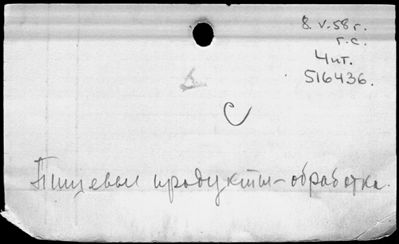 8.V.58 г.
г.с.
Чит.
516436.
С
Пищевые продукты–обработка.